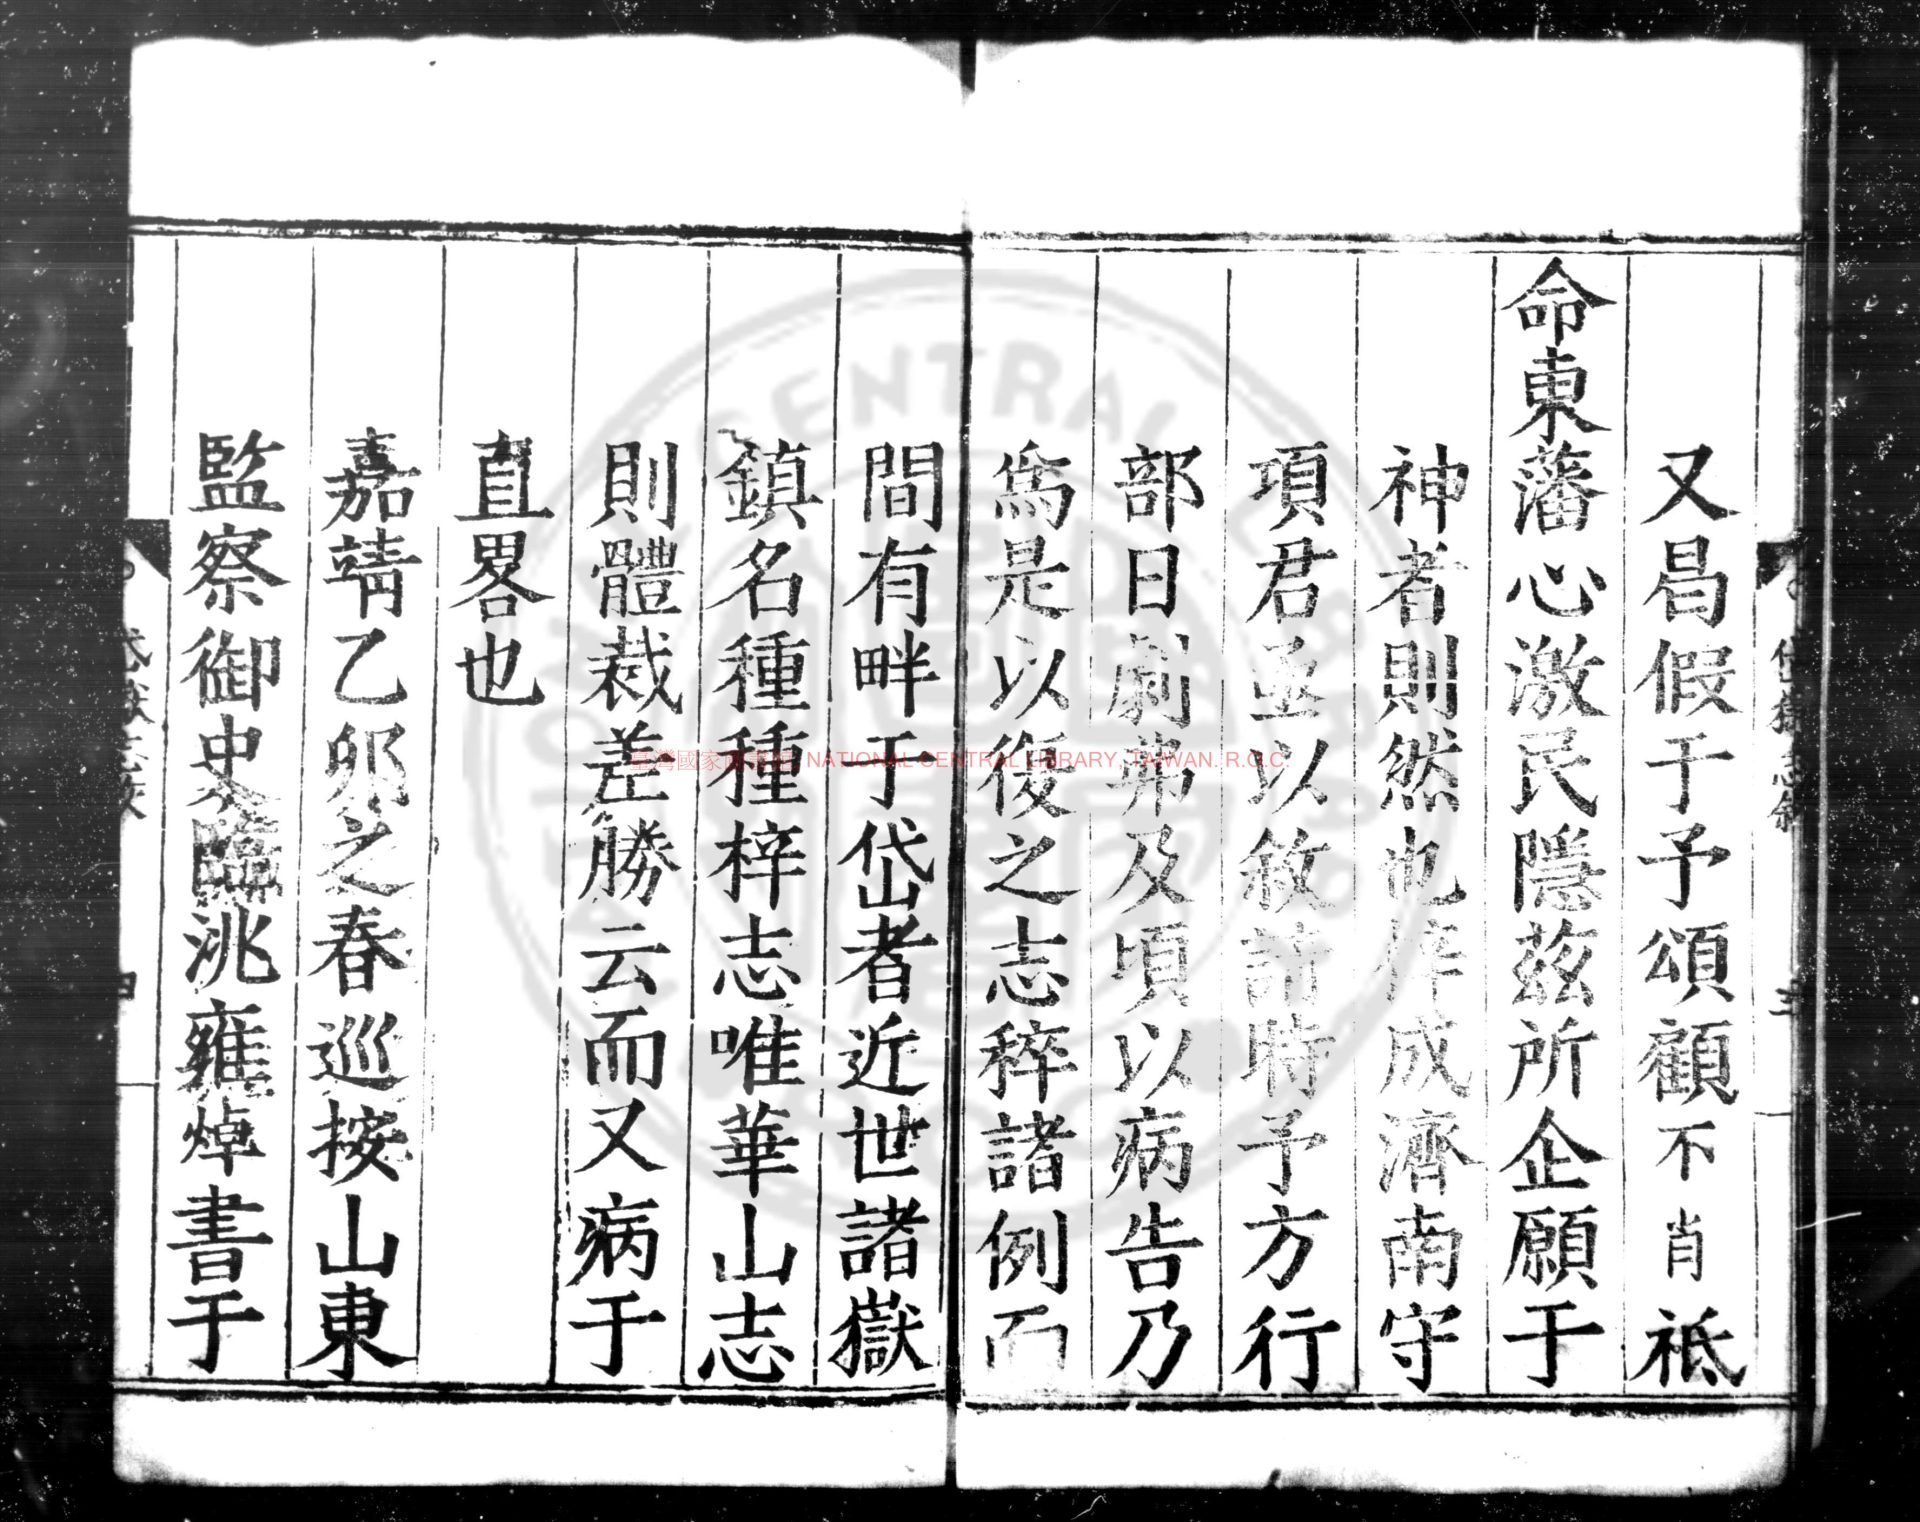 又昌假于予頌顧不肖祗
命東藩心激民隱茲所企願于
神者則然也梓成濟南守
項君亟以敘請時予方行
部日劇弗及頃以病告乃
為是以復之志稡諸例而
間有畔于岱者近世諸嶽
鎮名種種梓志唯華山志
則體裁差勝云而又病于
直畧也
嘉靖乙卯之春巡按山東
監察御史臨洮雍焯書于
岱獄志敘
三
四
臺灣國家圖書館 NATIONAL CENTRAL LIBRARY, TAIWAN. R.O.C.